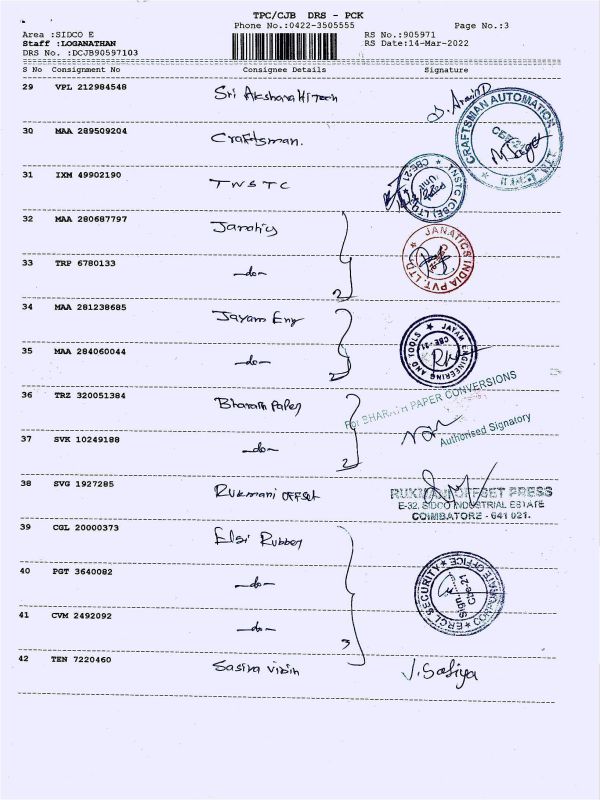 TPC/CJB DRS - PCK
Phone No.:0422-3505555
Page No.:3
Area :SIDCO E
RS No.:905971
Staff :LOGANATHAN
RS Date:14-Mar-2022
DRS No. :DCJB90597103
S No Consignment No Consignee Details Signature
29 VPL 212984548 Sri Akshara Hi Tech
30 MAA 289509204 Craftsman.
CRAFTSMAN AUTOMATION
31 IXM 49902190 TNSTC
TNSTC (CBE) LTD
CBE-21
Unit
32 MAA 280687797 Janatics
33 TRP 6780133 -do- 2
JANATICS INDIA PVT. LTD
34 MAA 281238685 Jayam Eng
35 MAA 284060044 -do- 2
JAYAM ENGINEERING AND TOOLS
CBE - 21
36 TRZ 320051384 Bharath Paper
For BHARATH PAPER CONVERSIONS
37 SVK 10249188 -do- 2
Authorised Signatory
38 SVG 1927285 Rukmani offset
RUKMANI OFFSET PRESS
E-32, SIDCO INDUSTRIAL ESTATE
COIMBATORE - 641 021.
39 CGL 20000373 Elgi Rubber
40 PGT 3640082 -do-
41 CVM 2492092 -do- 3
ERCL SECURITY
CORPORATE OFFICE
Sign.
Cbe-21
42 TEN 7220460 Sasiya vibin J. Sasiya